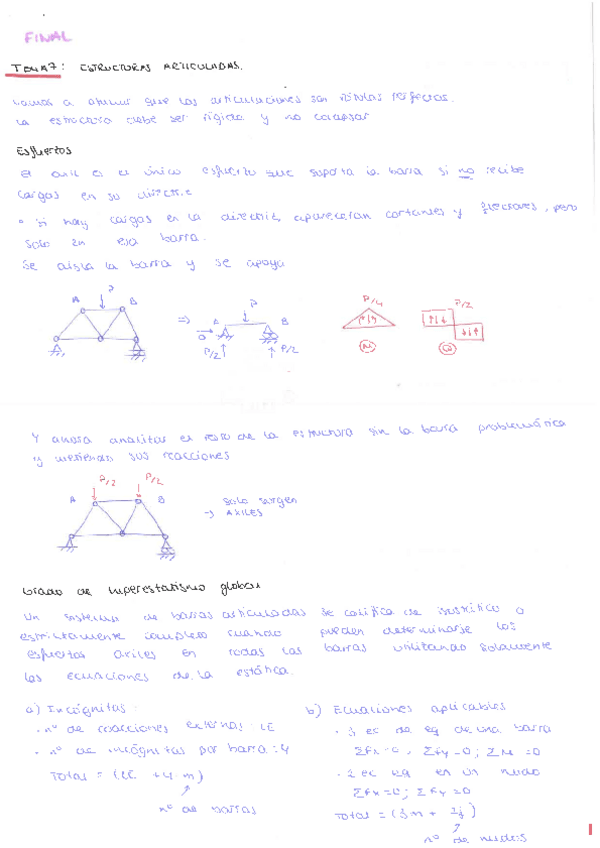 FINAL
TEMA 7: ESTRUCTURAS ARTICULADAS.
Vamos a asumir que las articulaciones son rótulas perfectas.
La estructura debe ser rígida y no colapsar
Esfuerzos
El axil es el único esfuerzo que soporta la barra si no recibe
cargas en su directriz
• Si hay cargas en la directriz, aparecerán cortantes y flectores, pero
solo en esa barra.
Se aisla la barra y se apoya
P
A B
⇒
P
A B
0
P/2 P/2
P/4
P/2
Y ahora analizar el resto de la estructura sin la barra problemática
y metiendo sus reacciones
P/2 P/2
A B
solo surgen
→ AXILES
Grado de hiperestatismo global
Un sistema de barras articuladas se califica de isostático o
estrictamente completo cuando pueden determinarse los
esfuerzos axiles en todas las barras utilizando solamente
las ecuaciones de la estática.
a) Incógnitas:
· nº de reacciones externas: LE
· nº de incógnitas por barra: 4
Total = (LE + 4·m)
nº de barras
b) Ecuaciones aplicables
· 3 ec de eq de una barra
ΣFx=0, ΣFy=0; ΣM=0
· 2 ec eq en un nudo
ΣFx=0; ΣFy=0
Total = (3m + 2j)
nº de nudos